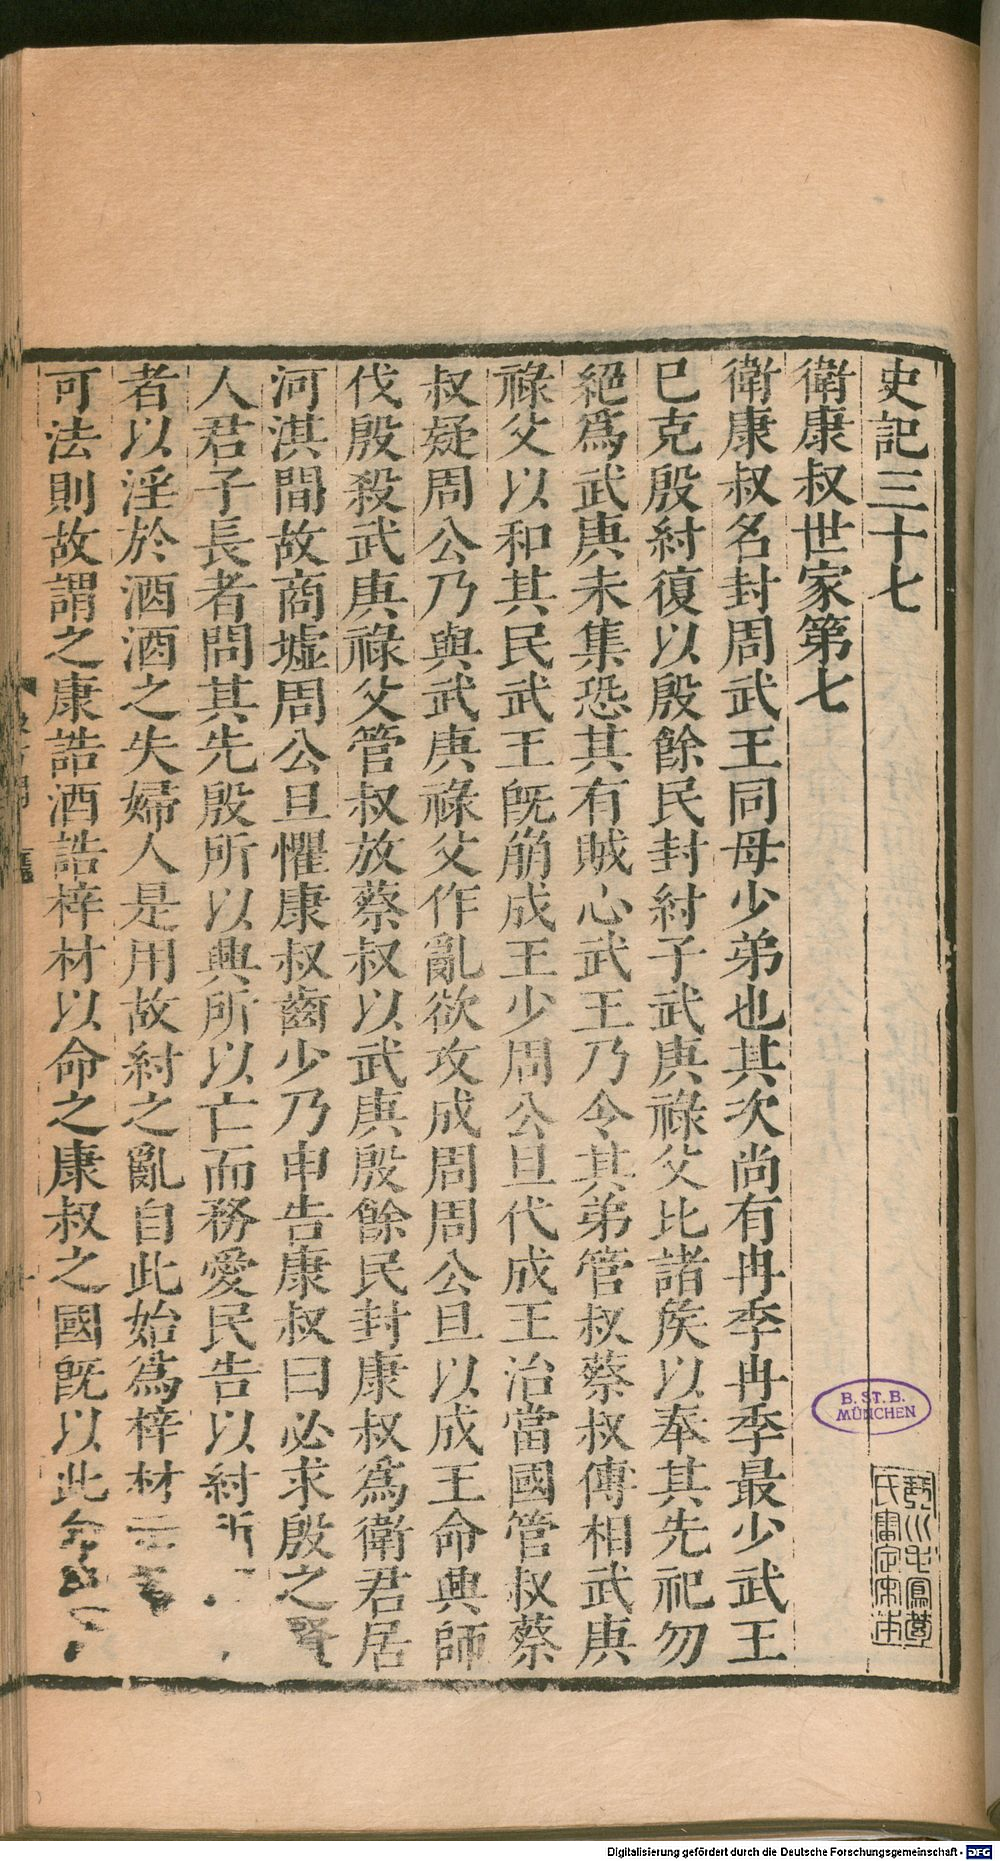 史記三十七
衛康叔世家第七
衛康叔名封周武王同母少弟也其次尚有冉季冉季最少武王
巳克殷紂復以殷餘民封紂子武庚祿父比諸矦以奉其先祀勿
絕爲武庚未集恐其有賊心武王乃令其弟管叔蔡叔傅相武庚
祿父以和其民武王旣崩成王少周公旦代成王治當國管叔蔡
叔疑周公乃與武庚祿父作亂欲攻成周周公旦以成王命興師
伐殷殺武庚祿父管叔放蔡叔以武庚殷餘民封康叔爲衛君居
河淇間故商墟周公旦懼康叔齒少乃申告康叔曰必求殷之賢
人君子長者問其先殷所以興所以亡而務愛民告以紂所
者以淫於酒酒之失婦人是用故紂之亂自此始爲梓材
可法則故謂之康誥酒誥梓材以命之康叔之國旣以此命
B. ST. B.
MÜNCHEN
Digitalisierung gefördert durch die Deutsche Forschungsgemeinschaft - DFG